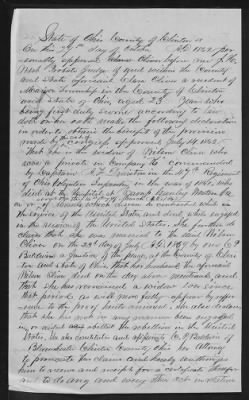 State of Ohio County of Clinton ss
On this 29th day of October A.D. 1862 per-
sonally appeared Adams Oliver before me J. B.
West Probate Judge of and within the County
and State aforesaid Clara Oliver a resident of
Marion Township in the County of Clinton
and State of Ohio, aged 23 Years who
being first duly sworn according to law
doth on her oath make the following declaration
in order to obtain the benefit of the provision
made by Congress approved July 14, 1862
That she is the widow of Wilson Oliver who
was a private in Company commanded
by Captain in the 4 Regiment
of Ohio Volunteer Infantry in the war of 1861, who
died at the Hospital
on or of disease
the service of the United States and died while engaged
in the service of the United States. She further de-
clares that she was married to the said Wilson
Oliver on the 28th day of July A.D. 1859 by one C. P.
Baldwin a Justice of the peace, at the County of Clin-
ton and State of Ohio, that her husband the aforesaid
Wilson Oliver died on the day above mentioned and
that she has remained a widow ever since
that period as will more fully appear by refer-
ence to the proof hereto annexed. She also declares
that she has not in any manner been engaged
in, or aided or abetted the rebellion in the United
States. She also constitutes and appoints C. P. Baldwin of
Blanchester Clinton County Ohio her Attorney
to prosecute this claim and hereby authorizes
him to receive and receipt for a certificate therefor
and to do any and every other act in relation